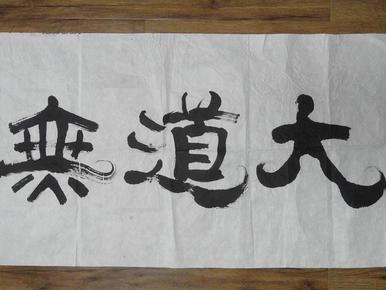 大道無